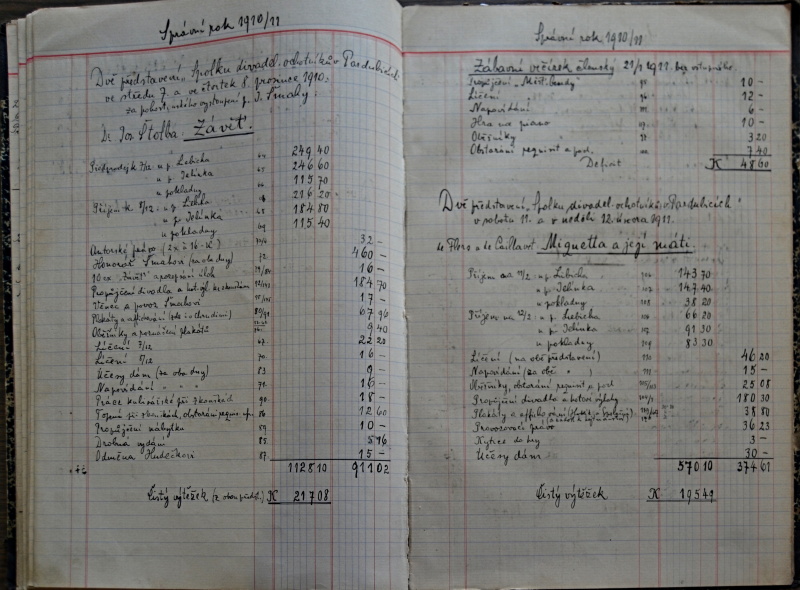 Správní rok 1910/11
Dvě představení Spolku divadel. ochotníků v Pardubicích
ve středu 7. a ve čtvrtek 8. prosince 1910.
za pohost. vystoupení p. J. Šmahy.
Dr. Jos. Štolba: Závěť.
Předprodej k 7/12 u p. Lebicha 249 40
u p. Jelínka 246 60
u pokladny 115 70
Příjem k 8/12 u p. 216 20
u p. Jelínka 184 80
u pokladny 115 40
Autorské právo (2 x à 16 K) 32 –
Honorář Šmahovi (za oba dny) 72 460 –
10 ex. "Závěť" a rozepsání úloh 16 –
Propůjčení divadla a 184 70
Věnec a povoz Šmahovi 17 –
Plakáty a afišování 67 96
Oběžníky a roznášení plakátů 9 40
Líčení 7/12 22 20
Líčení 8/12 70. 16 –
Účesy dám (za oba dny) 83. 9 –
Napovídání " " " 71. 16 –
Práce kulisářské při zkouškách 90. 18 –
Topení při zkouškách, obstarání requis. 86. 12 60
Propůjčení nábytku 89. 10 –
Drobná vydání 85. 5 16
Odměna Hudečkovi 87. 15 –
1128 10 911 02
Čistý výtěžek (z obou předst.) K 217 08
Správní rok 1910/11
Zábavní večírek členský 21/1 1911. bez vstupného.
Propůjčení „Měšť. besedy" 10 –
Líčení 12 –
Napovídání 6 –
Hra na piano 10 –
Oběžníky 3 20
Obstarání requisit a pod. 7 40
Deficit K 48 60
Dvě představení Spolku divadel. ochotníků v Pardubicích
v sobotu 11. a v neděli 12. února 1911.
de Flers a de Caillavet: Miquetta a její máti.
Příjem na 11/2 u p. Lebicha 143 70
u p. Jelínka 147 40
u pokladny 38 20
Příjem na 12/2 u p. Lebicha 66 20
u p. Jelínka 91 30
u pokladny 83 30
Líčení (na obě představení) 46 20
Napovídání (za obě " ) 15 –
Oběžníky, obstarání requisit a pod. 25 08
Propůjčení divadla a 180 30
Plakáty a 38 80
Provozovací právo 36 23
Kytice do hry 3 –
Účesy dám 30 –
570 10 374 61
Čistý výtěžek K 195 49